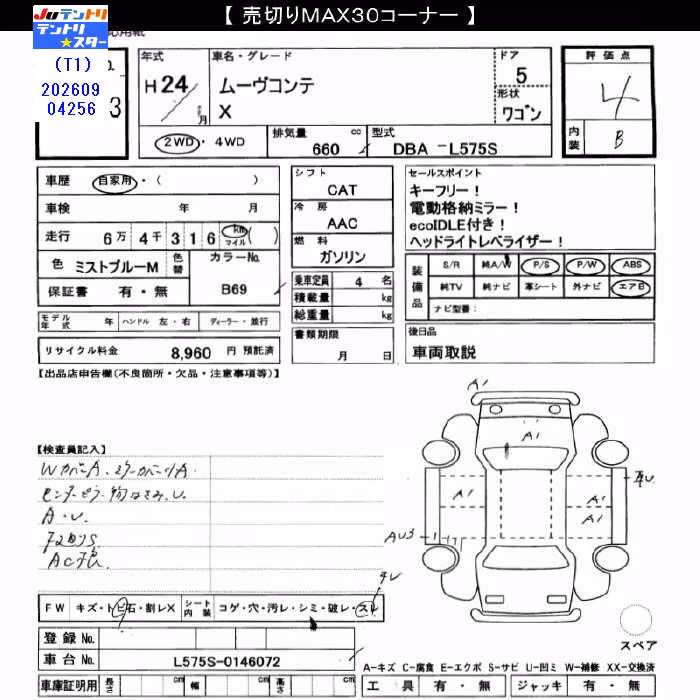 【 売切りMAX30コーナー 】
Juテントリ
テントリ
★スター
(T1)
202609
04256
3
年式
H 24
月
車名・グレード
ムーヴコンテ
X
ドア
5
形状
ワゴン
評価点
4
内装
B
2WD・4WD
排気量
660 cc
型式
DBA -L575S
車歴 自家用・( )
車検 年 月
走行 6万 4千 3 1 6 km マイル ( )
色 ミストブルーM 色替
カラーNo.
B69
保証書 有・無
モデル年式 年 ハンドル 左・右 ディーラー・並行
リサイクル料金 8,960 円 預託済
シフト
CAT
冷房
AAC
燃料
ガソリン
乗車定員 4 名
積載量 kg
総重量 kg
書類期限
月 日
セールスポイント
キーフリー!
電動格納ミラー!
ecoIDLE付き!
ヘッドライトレベライザー!
装備品
S/R 純A/W P/S P/W ABS
純TV 純ナビ 革シート 外ナビ エアB
ナビ型番:
後日品
車両取説
【出品店申告欄(不良箇所・欠品・注意事項等)】
【検査員記入】
A・U
A1
A1
A1
A1
A1
AU3
FW キズ・トビ石・割レX シート内装 コゲ・穴・汚レ・シミ・破レ・スレ
登録 No.
車台 No. L575S-0146072
車庫証明用 長さ cm 幅 cm 高さ cm
スペア
A-キズ C-腐食 E-エクボ S-サビ U-凹ミ W-補修 XX-交換済
工具 有・無 ジャッキ 有・無